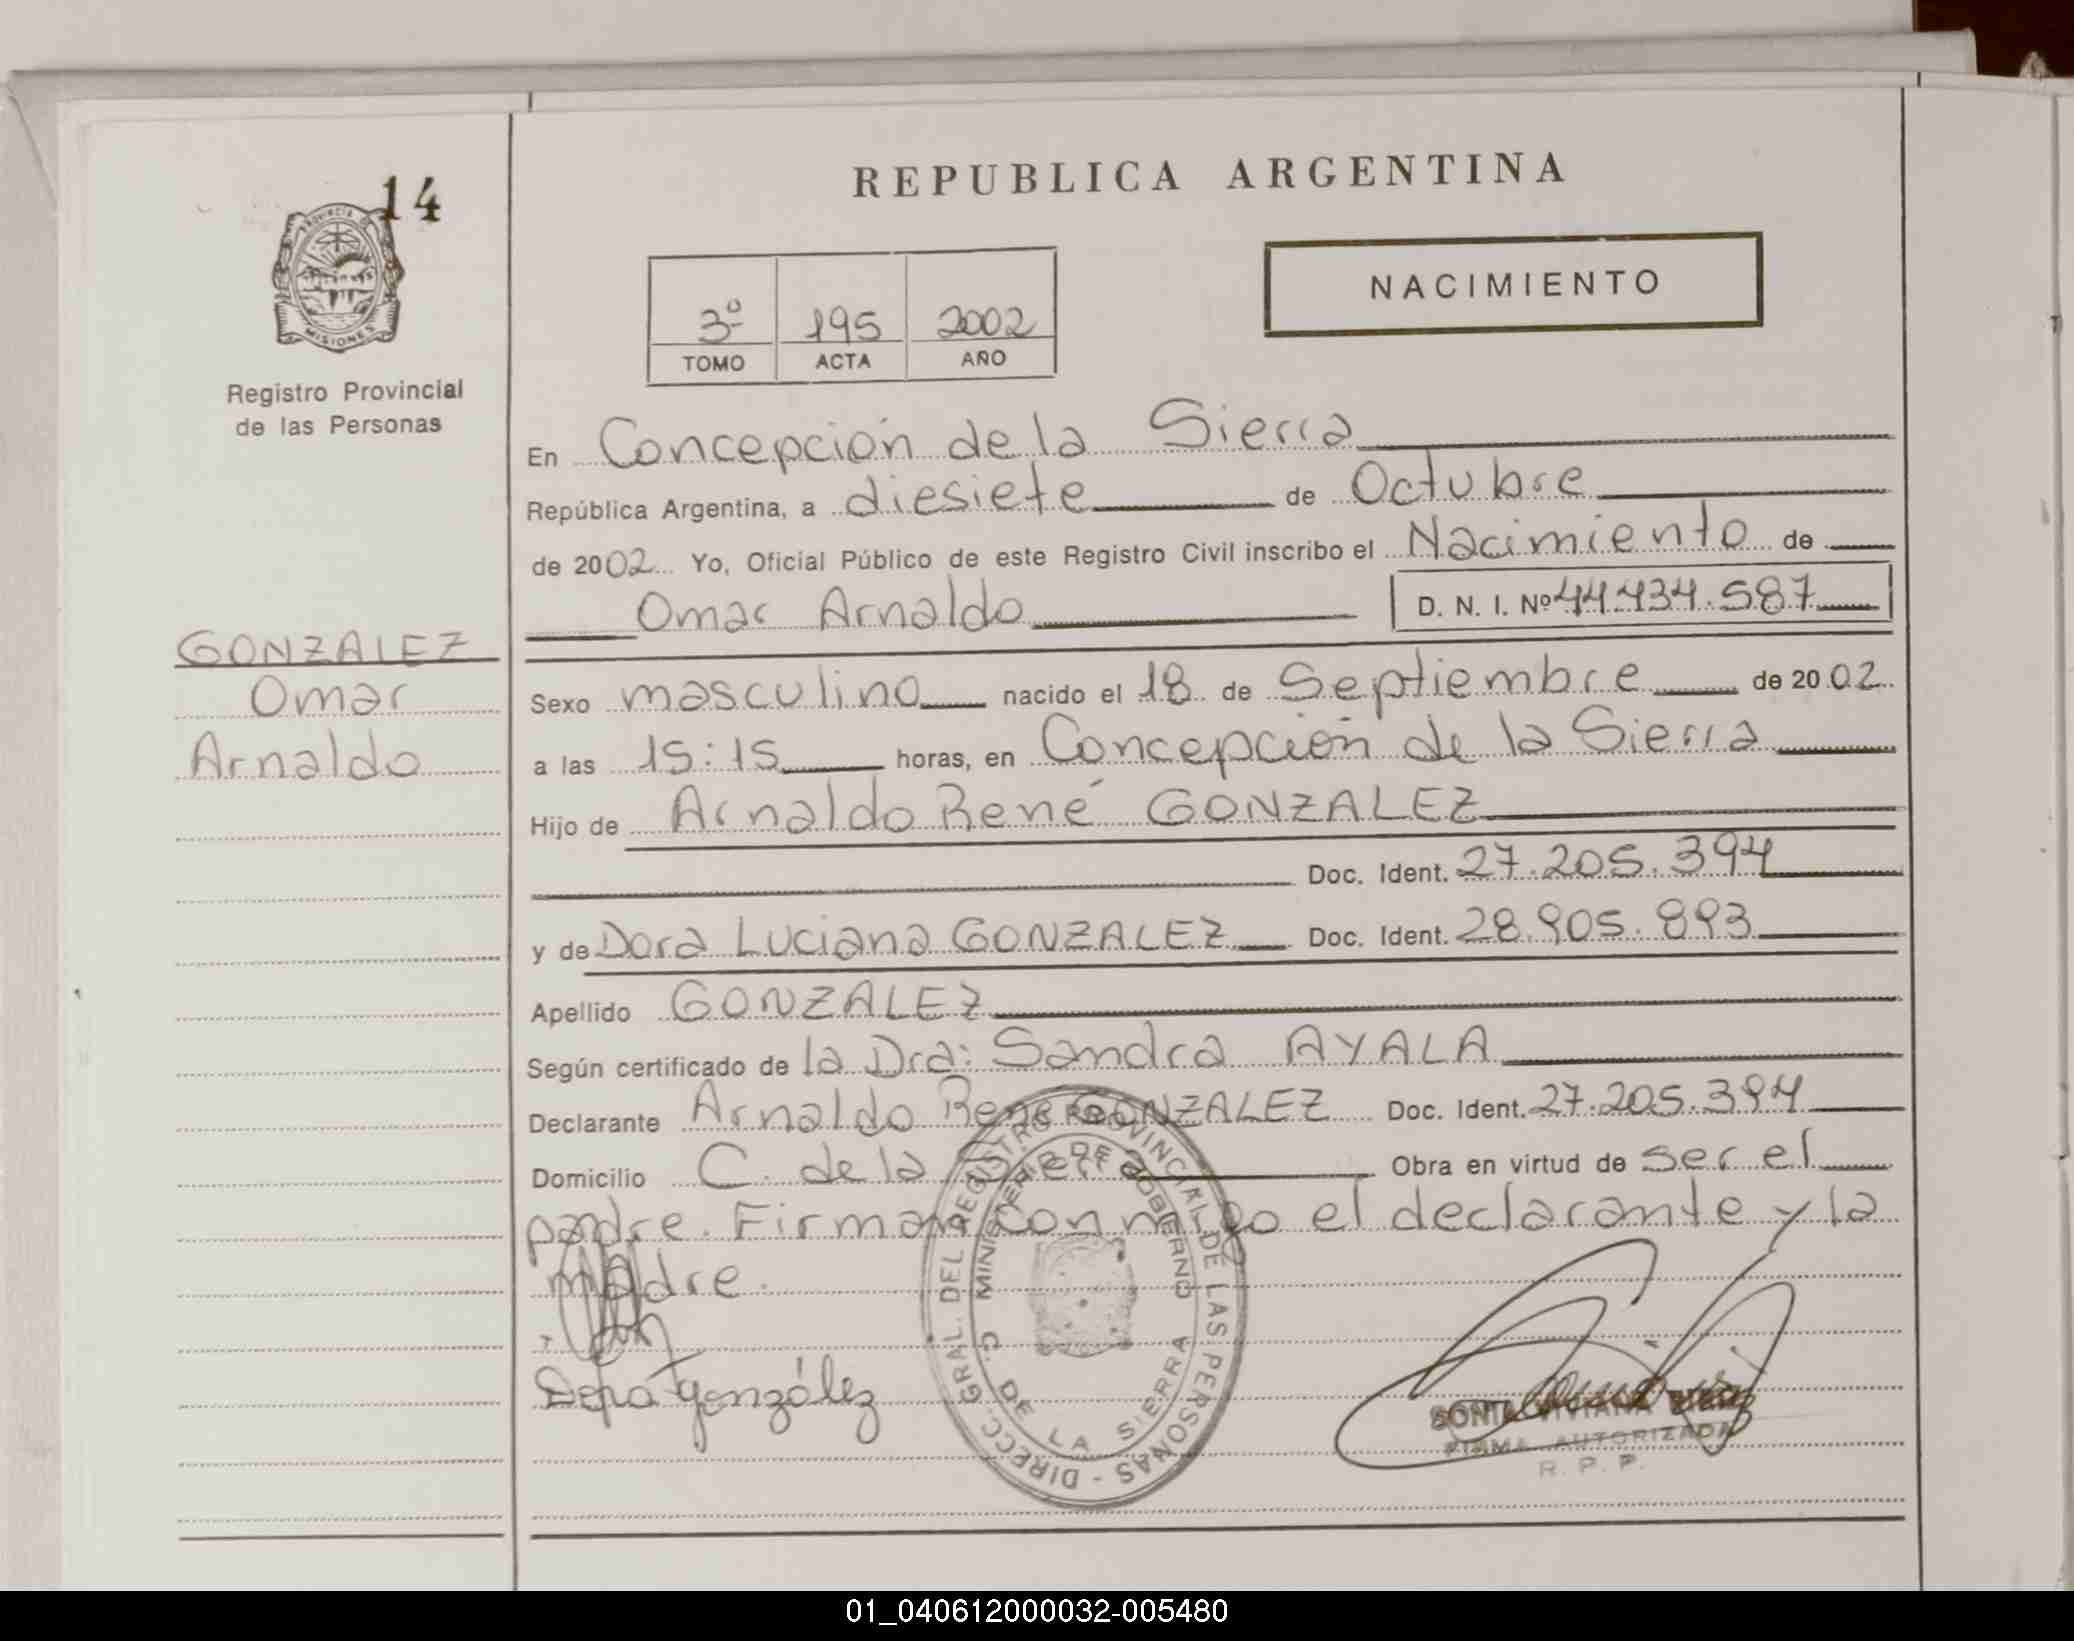 14
PROVINCIA DE
MISIONES
Registro Provincial
de las Personas
GONZALEZ
Omar
Arnaldo
REPUBLICA ARGENTINA
NACIMIENTO
3º 195 2002
TOMO ACTA AÑO
En Concepción de la Sierra
República Argentina, a diesiete de Octubre
de 2002 Yo, Oficial Público de este Registro Civil inscribo el Nacimiento de
Omar Arnaldo D. N. I. Nº 44.434.587
Sexo masculino nacido el 18 de Septiembre de 2002
a las 15:15 horas, en Concepción de la Sierra
Hijo de Arnaldo René GONZALEZ
Doc. Ident. 27.205.394
y de Dora Luciana GONZALEZ Doc. Ident. 28.905.893
Apellido GONZALEZ
Según certificado de la Dra: Sandra AYALA
Declarante Arnaldo René GONZALEZ Doc. Ident. 27.205.394
Domicilio C. de la Sierra Obra en virtud de ser el
padre. Firman con migo el declarante y la
madre.
Dora González
DIRECC. GRAL. DEL REGISTRO PROVINCIAL DE LAS PERSONAS -
MINISTERIO DE GOBIERNO
C. DE LA SIERRA
SONIA VIVIANA
FIRMA AUTORIZADA
R. P. P.
01_040612000032-005480